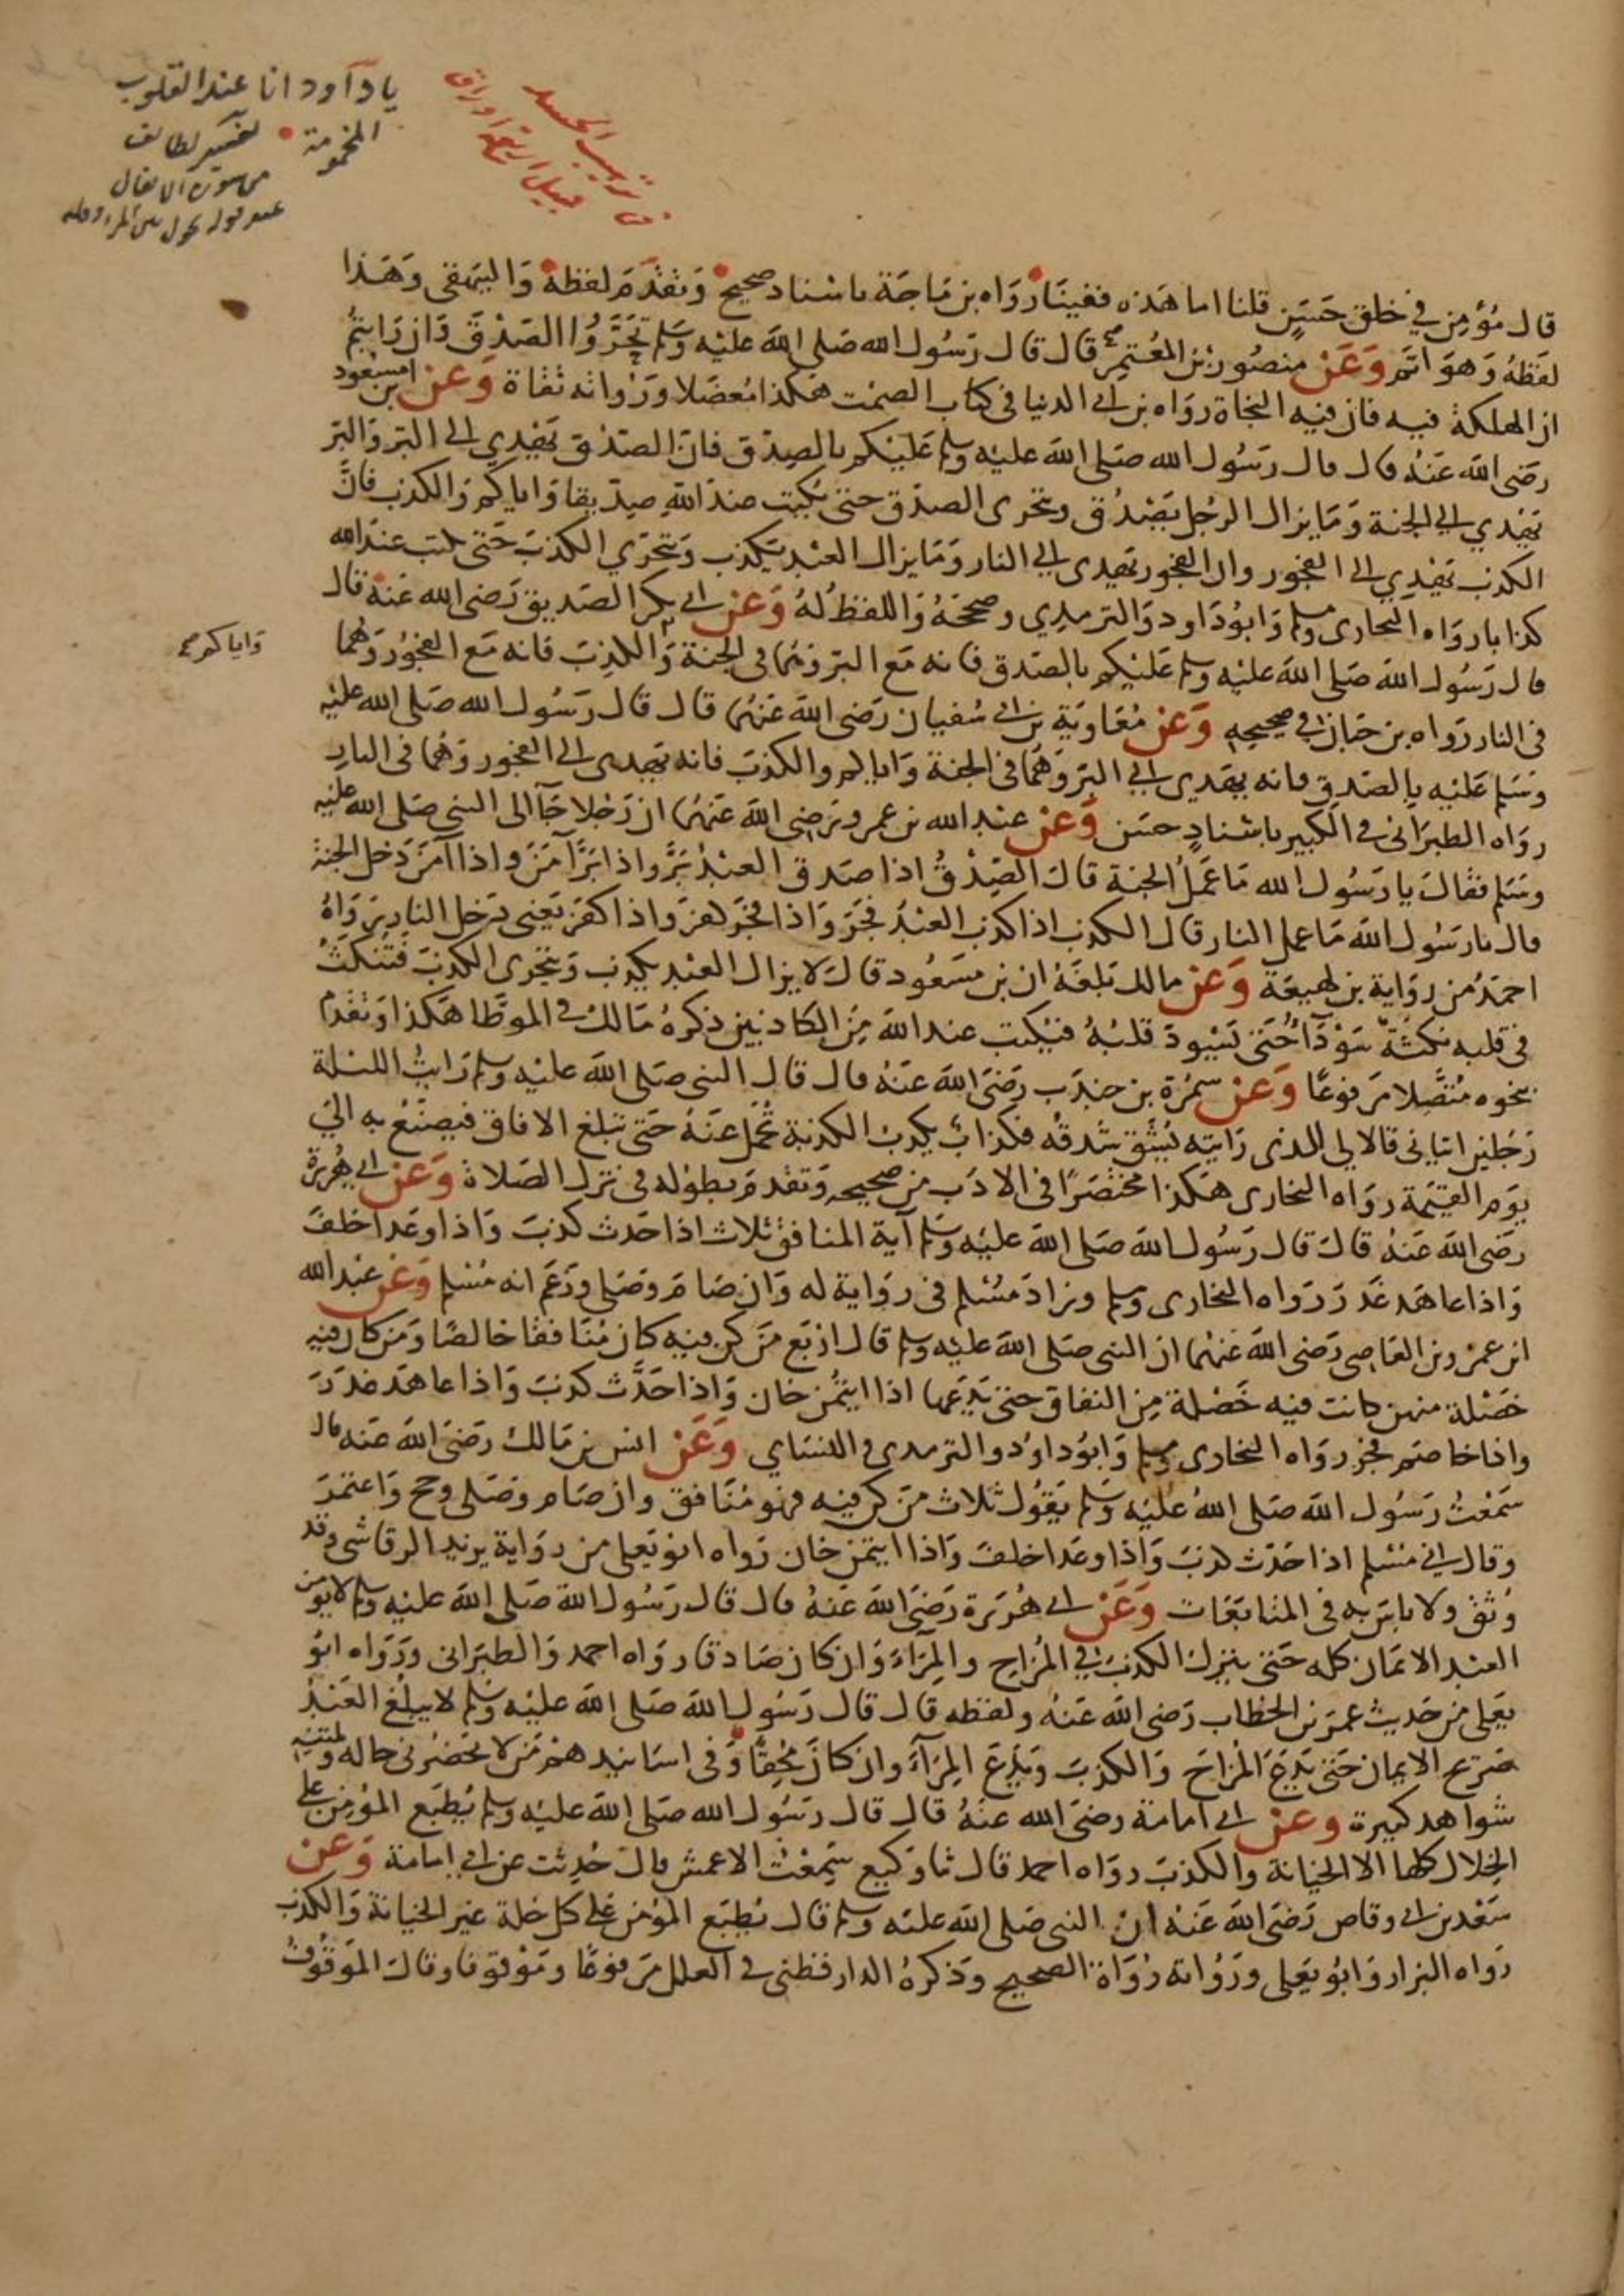 يا داود انا عند القلوب
المخمومة
تفسير لطائف
من سورة الانفال
قال مُؤمِن في خلق حَسَنٍ قلنا اما هَذه فغينَا رَوَاه بن مَاجَة باسْناد صحيح وَتقدَّمَ لفظهُ وَالبيهقي وَهَذا
لفظهُ وَهوَ اتَم وَعَنْ منصُور بْن المعُتمِر قال قال رَسُول الله صَلى الله عليْه وَسَلم تَحَرَّوُا الصّدقَ وَان رَايتمُ
ان الهلكة فيه فان فيه النجاة روَاه بن ابي الدنيا في كتاب الصّمْت هَكذا مُعضَلا وَرُوَاته ثقاة وَعَنْ بن مسْعُود
رَضي الله عَنهُ قال قال رسُول الله صَلى الله عليْه وسلم عَليْكم بالصِدْق فانّ الصّدْق يَهْدي الى البّر وَالبّر
يَهْدي الي الجنة وَمَا يزال الرجُل يَصْدُق ويتحرى الصدْق حتىَ يُكتب عندَ الله صِدّيقا وَاياكم وَالكذب فانَّ
الكذب يَهْدِي الى الفجُور وان الفجور يَهدى الي النار وَمَا يزال العَبْد يَكذب وَيتحَرّي الكذبَ حَتى يكتب عندَ الله
كذابا روَاه البخاري ومسلم وَابوُ دَاود وَالترمِذِي وصححَهُ وَاللفظ لهُ وَعَنْ ابي بكر الصّديق رَضي الله عَنهُ قال
قال رَسُول الله صَلى الله عليْه وسلم عَليْكم بالصّدق فانه مَع البّر وَهُمَا في الجنة وَالكذِبَ فانه مَع الفجُورُ وَهُمَا
وَاياكم صح
في النار رَوَاه بن حبان في صحيحِهِ وَعَنْ مُعَاويَة بن ابي سُفيان رَضي الله عَنهُما قال قال رَسُول الله صَلى الله عليْه
وسَلم عَليْه بِالصّدقِ فانه يَهدي الي البّر وَهُمَا في الجنة وَاياكم والكذبَ فانه يَهدى الى الفجُور وَهُمَا في النارِ
روَاه الطبَرَاني في الكبير باسْنادٍ حسَن وَعَنْ عَبْد الله بن عمرو رَضِي الله عَنهُما ان رَجُلا جَآ الى النبي صَلى الله عليْه
وسَلم فقالَ يا رَسُول الله مَا عَمَلُ الجنة قالَ الصِدْقُ اذا صَدق العَبْدُ بَرَّ واذا بَرَّ آمَنَ واذا آمَنَ دَخل الجنة
قال يا رسُول الله مَا عمل النار قال الكذب اذا كذب العَبْدُ فجَرَ وَاذا فجَرَ كفَرَ وَاذا كفرَ يَعْنِي دَخل النار رَوَاهُ
احمَدُ من روَاية بن لهيعَة وَعَنْ مالك بَلغَهُ ان بن مسَعُود قالَ لا يزال العَبْد يكذب وَيتحرى الكذبَ فتُنكتُ
في قلبه نكتةٌ سَوْدَآُ حَتى يَسْوَدّ قلبْهُ فيُكتب عندَ الله مِنَ الكاذبينَ ذكرهُ مَالك في الموطَّا هَكذا وَتقدّم
بنحوه مُتصِلا مَرفوعًا وَعَنْ سَمُرَة بن جندَب رَضيَ الله عَنهُ قال قال النبي صَلى الله عليْه وسلم رَايتُ الليْلة
رَجُلين اتياني قالا لي الذي رَايته يُشَق شدقهُ فكذابٌ يكذبُ الكذبة تُحمَل عَنهُ حَتى تبلغ الافاق فيصْنَعُ به الىَ
يوَم القيمة روَاه البخاري هَكذا مختصَرًا في الادَب من صَحِيحِه وَتقدمَ بطوله في ترك الصَلاة وَعَنْ ابي هُريرَة
رَضي الله عَنهُ قالَ قال رَسُول الله صَلى الله عليْه وَسَلم آية المنافق ثلاث اذا حَدث كذبَ وَاذا وعَد اخلفَ
وَاذا عاهَد غَدَرَ رَوَاه البخاري ومسلم وزادَ مسُلم في روَاية له وَان صَامَ وصَلى وزَعَم انه مسْلم وَعَن عَبْد الله
بن عمْرو بن العَاصِى رَضي الله عَنهُما ان النبي صَلى الله عليْه وسلم قال ارْبَع مَن كنّ فيه كان مُنَافقا خالصًا وَمَن كان فيه
خصْلة منهن كانت فيه خَصْلة مِن النفاق حتى يَدعَها اذا ايتُمِن خان وَاذا حَدَّث كذبَ وَاذا عاهَد غَدَرَ
واذا خاصَم فجَر روَاه البخاري ومسلم وَابوُ داوُد والترمذى والنسَاي وَعَنْ انس بن مَالك رَضيَ الله عَنه قال
سَمَعْتُ رَسُول الله صَلى اللهُ عليْه وَسَلم يَقوُل ثلاث مَنْ كن فيه فهوَ مُنَافق وان صَام وصَلى وحج وَاعتمَرَ
وقال اني مسْلم اذا حَدّث كذبَ وَاذا وعَد اخلفَ وَاذا ايتمن خان رَواه ابوُ يَعلى من روَاية يزيد الرقاشى وقد
وُثق ولا باس به في المتابَعَات وَعَنْ ابي هُرَيرَة رَضيَ الله عَنهُ قال قال رَسُول الله صَلى الله عليْه وسلم لا يؤمن
العَبْد الايمَان كله حَتى يترك الكذبَ في المُزاحِ والمِرَاءَ وَان كان صَادقا روَاه احمد وَالطبَراني ورَوَاه ابوُ
يَعلى من حَديث عمَر بن الخطاب رَضي الله عَنهُ ولفظه قال قال رَسُول الله صَلى الله عليْه وَسَلم لا يبلغ العَبْدُ
صَرِيح الايمان حَتى يَدَعَ المُزاحَ وَالكذبَ وَيَدَعَ المِرَآءَ وان كانَ مُحِقًّا وَفي اسَانيد هم مَن لا يحَضُرني حاله ولمتنه
شواهد كبيرة وعن ابي امامة رضيَ الله عنهُ قال قال رسُول الله صَلى الله عليْه وسلم يُطبَع المؤمِن على
الخِلال كلها الا الخيَانة والكذبَ روَاه احمد قال ثنا وَكيع سَمِعْتُ الاعمش قالَ حُدِثت عن ابي امامة وَعَن
سَعْد بن ابي وقاص رَضيَ الله عَنهُ انّ النبي صَلى الله عليْه وسلم قال يُطبَع المؤمن عَلى كل خلة غيَر الخيانة وَالكذب
رَواه البزار وَابوُ يَعلى ورُوَاته رُوَاة الصحيح وَذكرهُ الدارقطني في العلل مَرفوعًا ومَوْقوفا وقالَ الموَقوُفُ